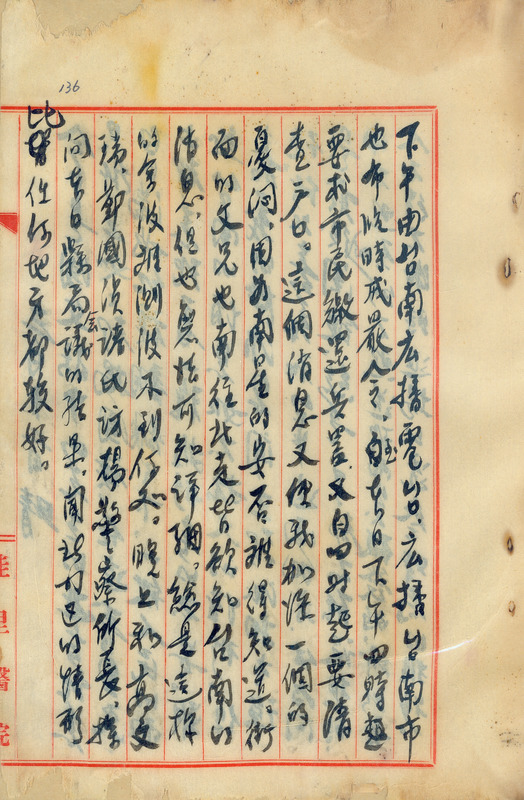 136
下午由台南広播電台，広播台南市
也布臨時戒嚴令，自本日下午四時起
要求市民繳還兵器，又自四時起要清
查戶口。這個消息又使我加深一個的
憂悶，因為南星的安否誰得知道。街
面的父兄也南往北走皆欲知台南的
消息，但也無法可知詳細。總是這樣
的余波誰測波不到何処。晚上和高文
瑞、鄭國津諸氏訪楊警察所長，探
問本日縣局會議的結果。聞北門區的情形
比任何地方都較好。
佳里醫院